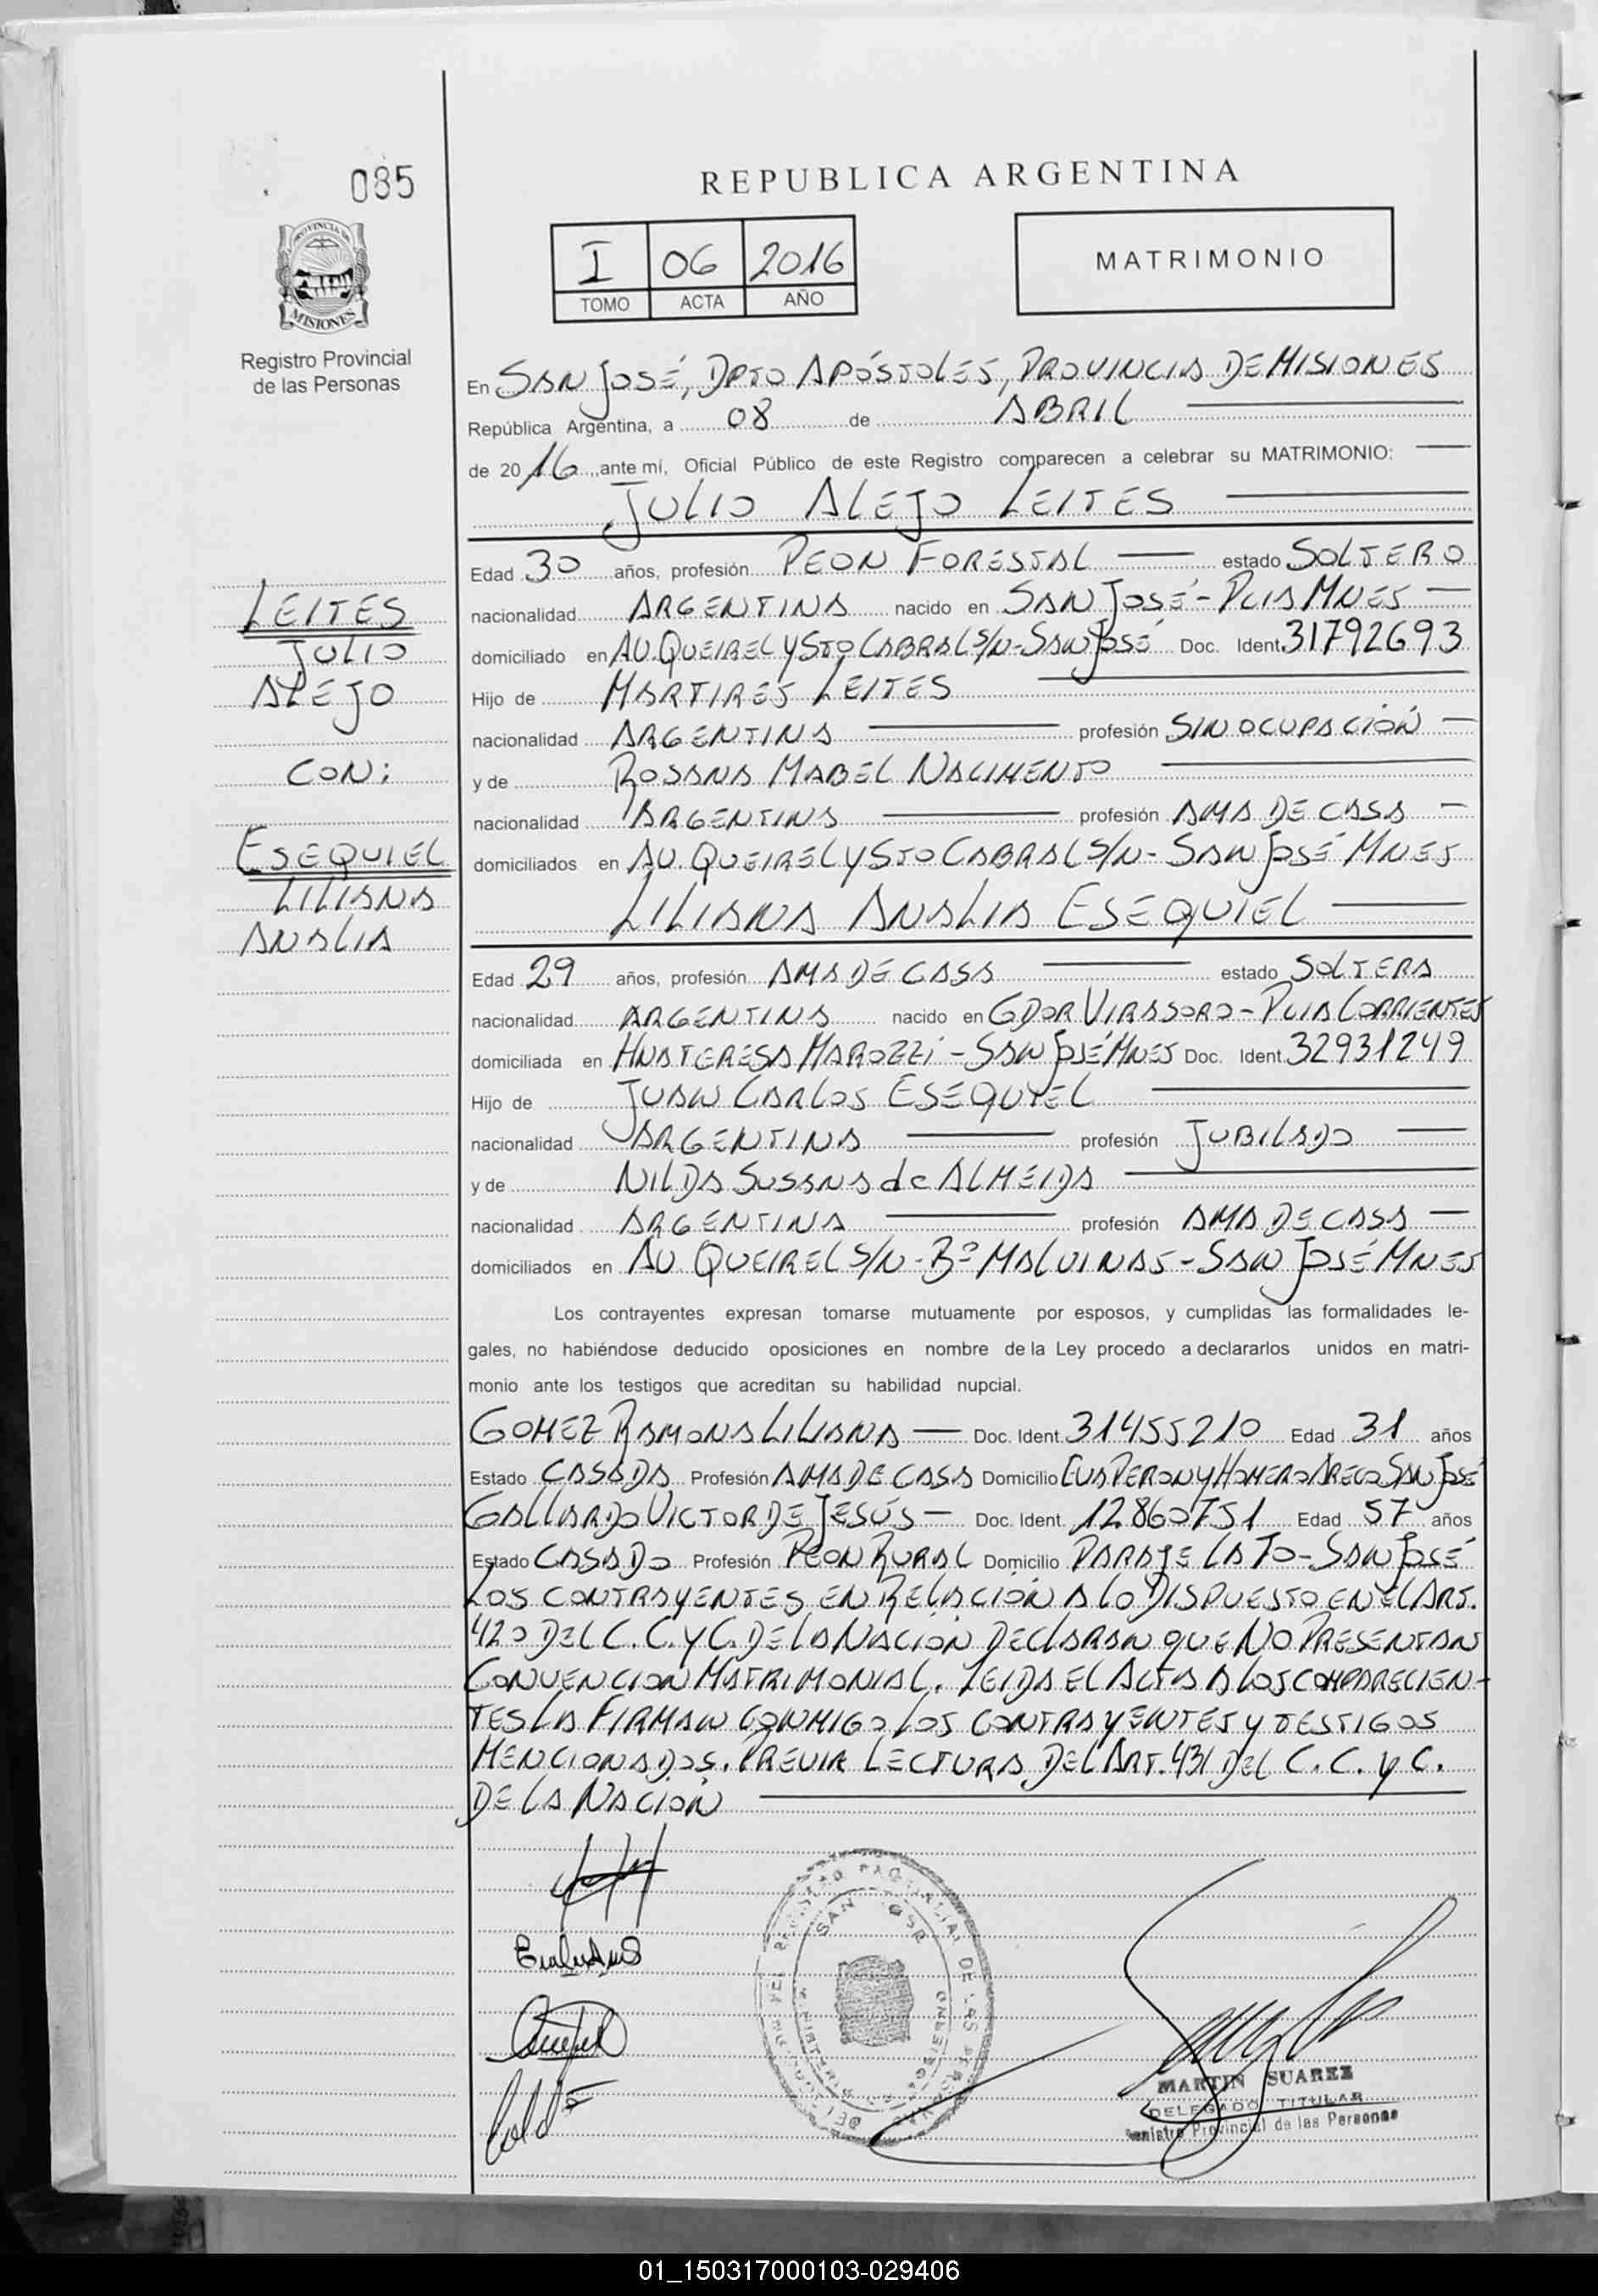 085
REPUBLICA ARGENTINA
I 06 2016
TOMO ACTA AÑO
MATRIMONIO
PROVINCIA DE
MISIONES
Registro Provincial
de las Personas
En SAN JOSÉ, DPTO APÓSTOLES, PROVINCIA DE MISIONES
República Argentina, a 08 de ABRIL
de 2016, ante mí, Oficial Público de este Registro comparecen a celebrar su MATRIMONIO:
JULIO ALEJO LEITES
Edad 30 años, profesión PEON FORESTAL estado SOLTERO
nacionalidad ARGENTINA nacido en SAN JOSÉ - PCIA MNES
domiciliado en AV. QUEIREL Y STO CABRAL S/N - SAN JOSÉ Doc. Ident. 31792693
Hijo de MARTIRES LEITES
nacionalidad ARGENTINA profesión SIN OCUPACIÓN
y de ROSANA MABEL NACIMENTO
nacionalidad ARGENTINA profesión AMA DE CASA
domiciliados en AV. QUEIREL Y STO CABRAL S/N - SAN JOSÉ MNES
LILIANA ANALIA ESEQUIEL
LEITES
JULIO
ALEJO
CON:
ESEQUIEL
LILIANA
ANALIA
Edad 29 años, profesión AMA DE CASA estado SOLTERA
nacionalidad ARGENTINA nacido en GDOR VIRASORO - PCIA CORRIENTES
domiciliada en HNA TERESA MAROZZI - SAN JOSÉ MNES Doc. Ident. 32931249
Hijo de JUAN CARLOS ESEQUIEL
nacionalidad ARGENTINA profesión JUBILADO
y de NILDA SUSANA de ALMEIDA
nacionalidad ARGENTINA profesión AMA DE CASA
domiciliados en AV QUEIREL S/N - Bº MALVINAS - SAN JOSÉ MNES
Los contrayentes expresan tomarse mutuamente por esposos, y cumplidas las formalidades le-
gales, no habiéndose deducido oposiciones en nombre de la Ley procedo a declararlos unidos en matri-
monio ante los testigos que acreditan su habilidad nupcial.
GOMEZ RAMONA LILIANA Doc. Ident. 31455210 Edad 31 años
Estado CASADA Profesión AMA DE CASA Domicilio EVA PERON Y HOMERO ARECO SAN JOSÉ
GALLARDO VICTOR DE JESÚS Doc. Ident. 12.860751 Edad 57 años
Estado CASADO Profesión PEON RURAL Domicilio PARAJE LATO - SAN JOSÉ
LOS CONTRAYENTES EN RELACIÓN A LO DISPUESTO EN EL ART.
420 DEL C.C. Y C. DE LA NACION DECLARAN QUE NO PRESENTAN
CONVENCION MATRIMONIAL. LEIDA EL ACTA A LOS COMPARECIEN-
TES LA FIRMAN CONMIGO LOS CONTRAYENTES Y TESTIGOS
MENCIONADOS. PREVIA LECTURA DEL ART. 431 DEL C.C. y C.
DE LA NACION
SAN JOSE
MARTIN SUAREZ
DELEGADO TITULAR
Registro Provincial de las Personas
01_150317000103-029406